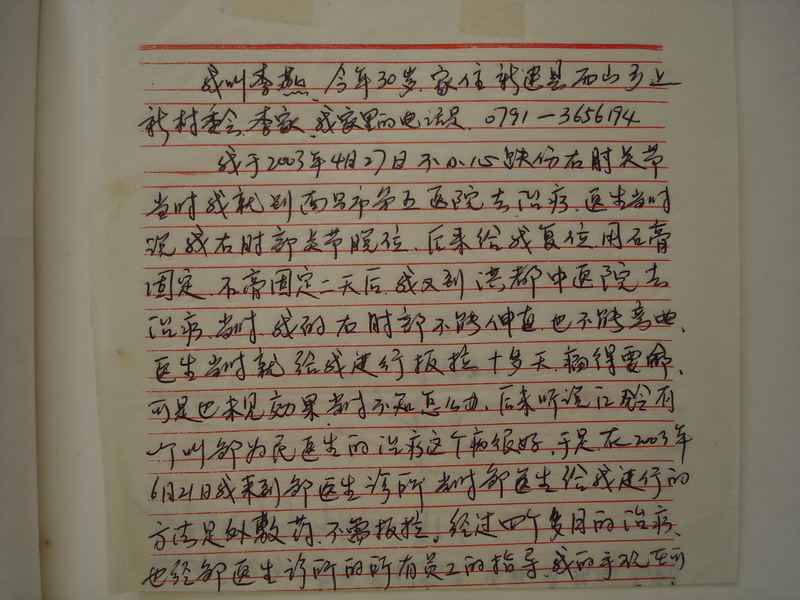 我叫李燕、今年30岁.家住新建县西山乡
新村委会.李家.我家里的电话是.0791—3656194.
我于2003年4月27日不小心跌伤右肘关节
当时我就到南昌市第五医院去治疗.医生当时
说我右肘部关节脱位.后来给我复位.用石膏
固定.石膏固定二天后.我又到洪都中医院去
治病.当时.我的右肘部不能伸直.也不能弯曲.
医生当时就给我进行扳拉十多天.痛得要命、
可是也未见效果当时不知怎么办.后来听说 有
个叫邹为民医生的治疗这个病很好.于是.在2003年
6月21日我来到邹医生诊所当时邹医生给我进行的
方法是外敷药.不需扳拉。经过四个多月的治病、
也经邹医生诊所的所有员工的指导.我的手现在可